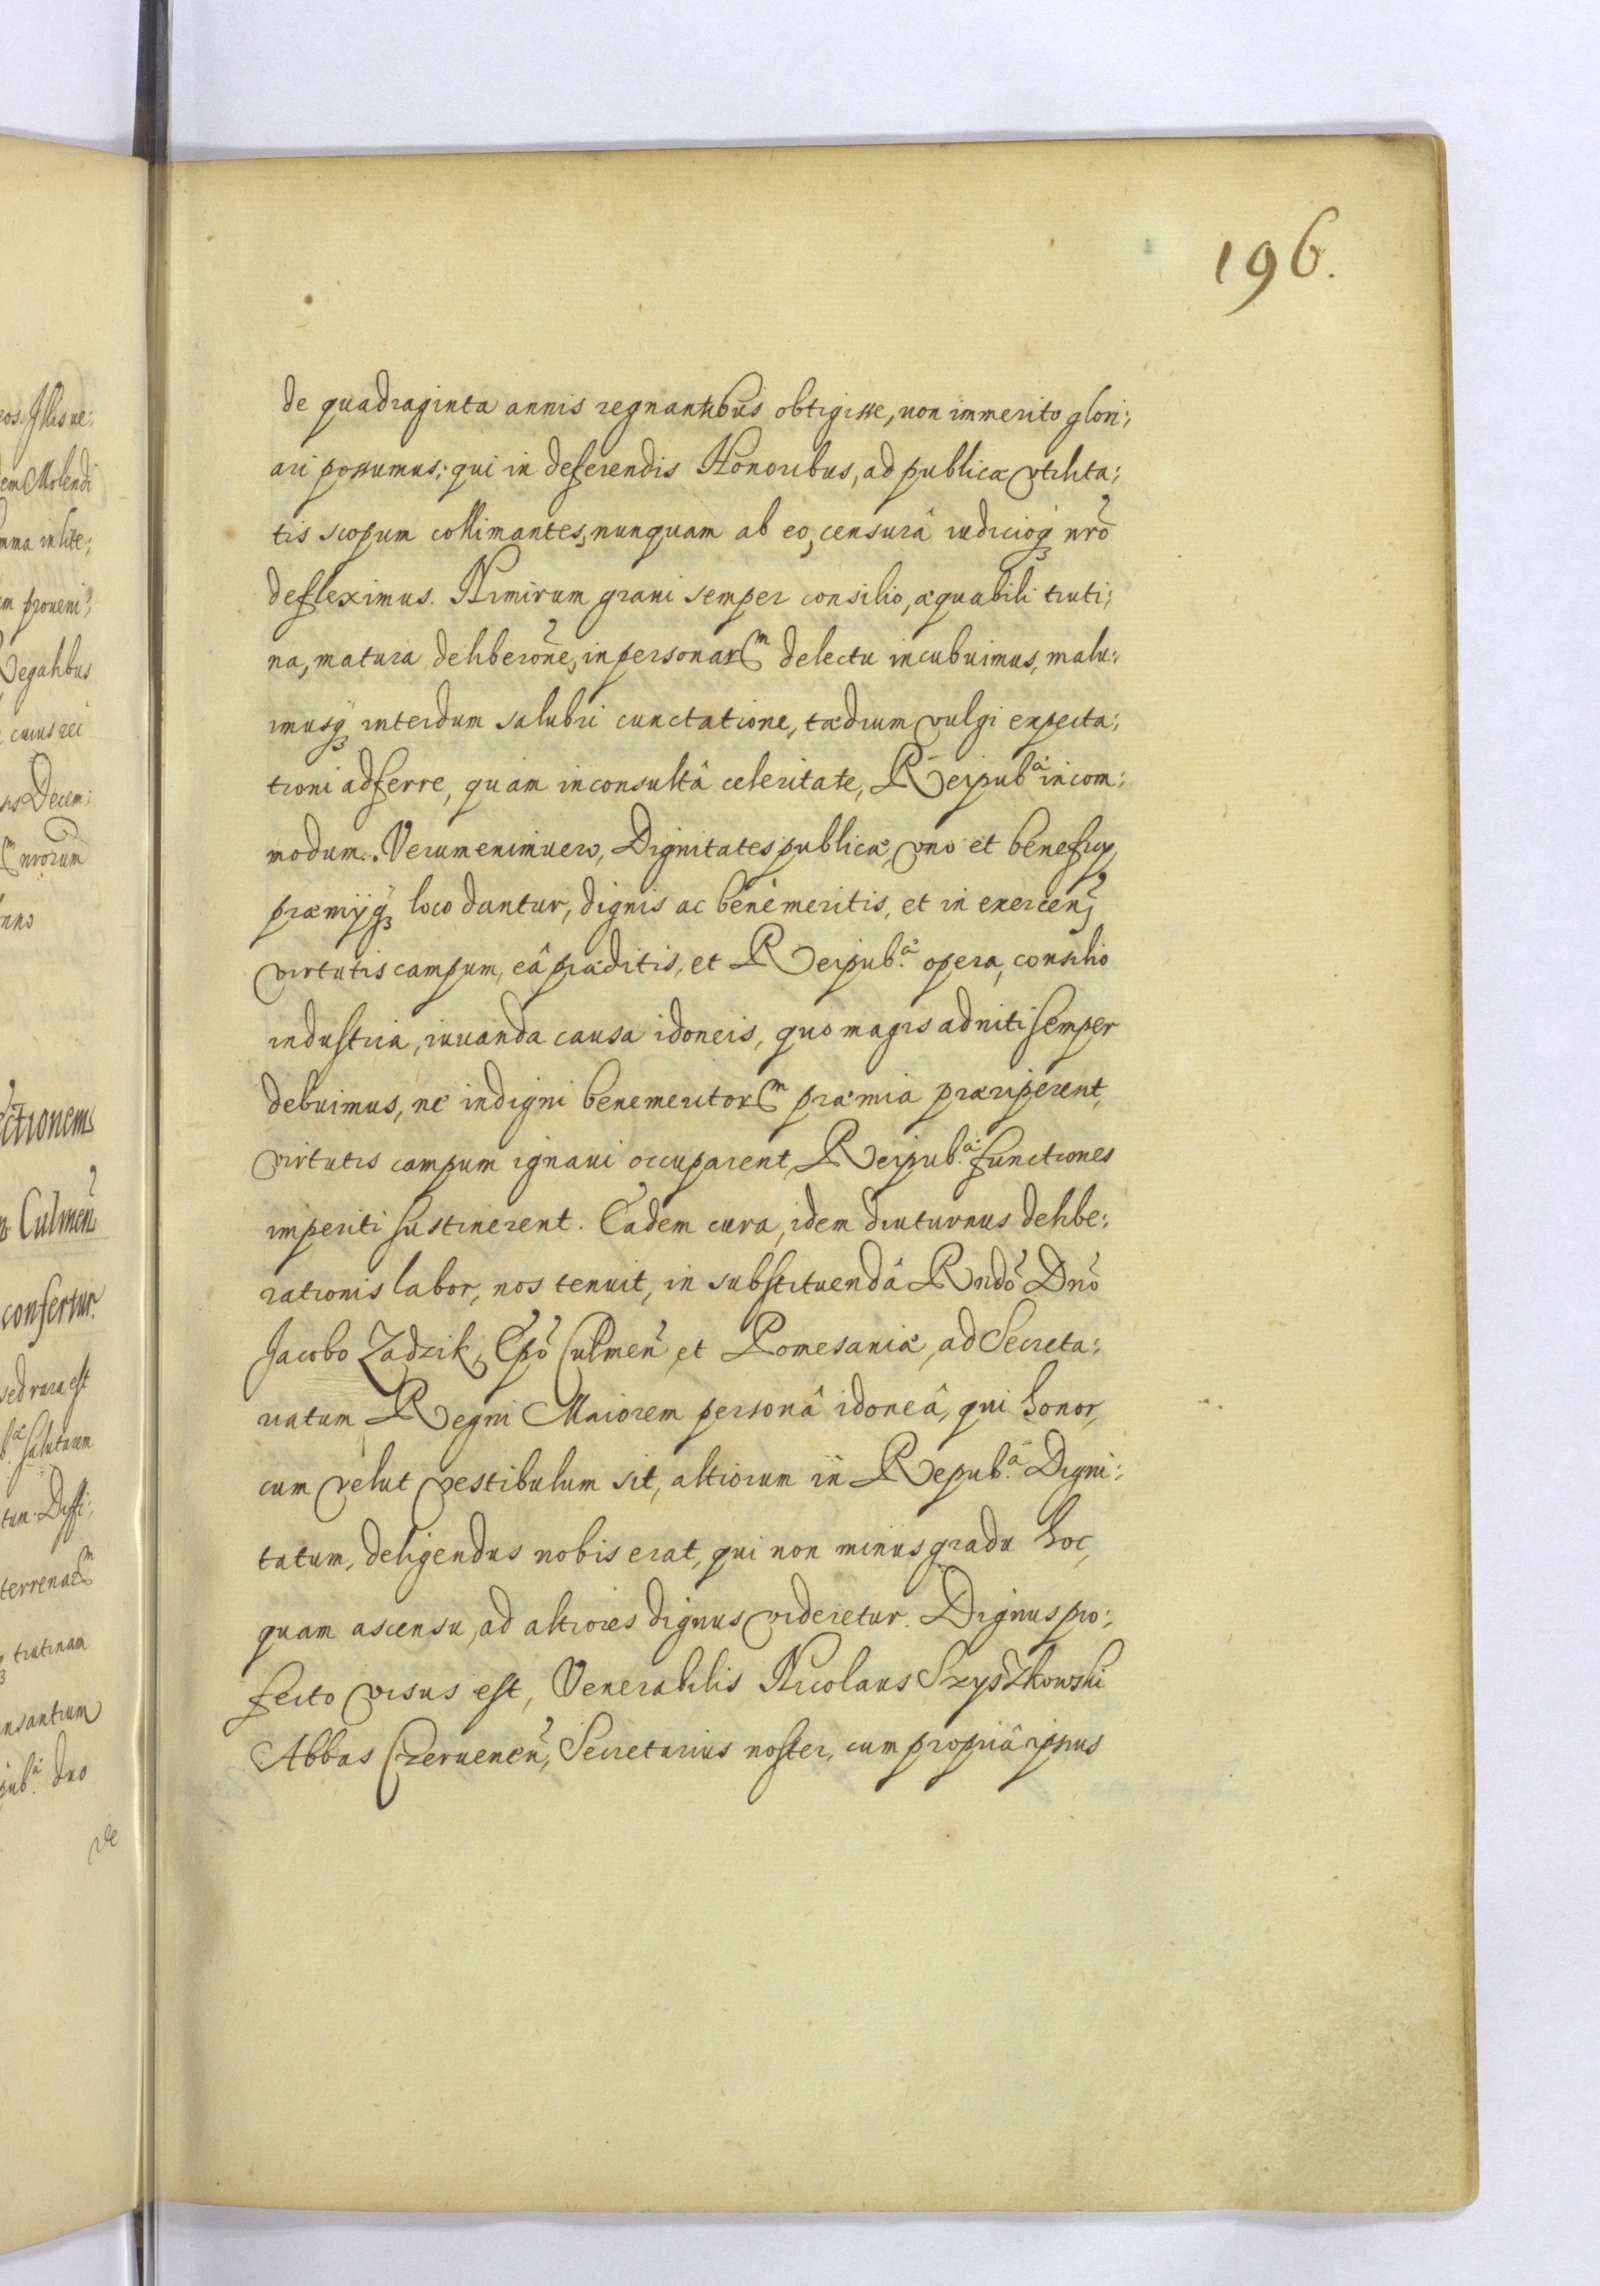 196.
de quadraginta annis regnantibus obtigisse, non immerito glori:
ari possumus; qui in deferendis Honoribus, ad publicæ vtilita:
tis scopum collimantes, nunquam ab eo, censurâ iudicioq3 nr̃o
defleximus. Nimirum graui semper consilio, æquabili truti:
na, matura deliberõne, in personarum delectu incubuimus, malu:
imusq3 interdum salubri cunctatione, tædium vulgi expecta:
tioni adferre, quam inconsultâ celeritate, Reipub.æ incom:
modum. Verumenimuero, Dignitates publicæ, vno et beneficy,
præmijq3 loco dantur, dignis ac benè meritis, et in exercen̄
virtutis campum, eâ præditis, et Reipub.æ opera, consilio
industria, iuuanda causa idoneis, quo magis adniti semper
debuimus, nè indigni benemeritorum præmia præriperent,
virtutis campum ignaui occuparent, Reipub.æ functiones
imperiti sustinerent. Eadem cura, idem diuturnus delibe:
rationis labor, nos tenuit, in substituendâ Rndo᷉ Dno᷉
Jacobo Zadzik, Epo᷉ Culmen᷉ et Pomesaniæ, ad Secreta:
riatum Regni Maiorem personâ idoneâ, qui honor,
cum velut vestibulum sit, altiorum in Repub.â Digni:
tatum, deligendus nobis erat, qui non minus gradu hoc,
quam ascensu, ad altiores dignus videretur. Dignus pro:
fecto visus est, Venerabilis Nicolaus Szyszkowski
Abbas Czeruenen᷉, Secretarius noster, cum propriâ ipsius